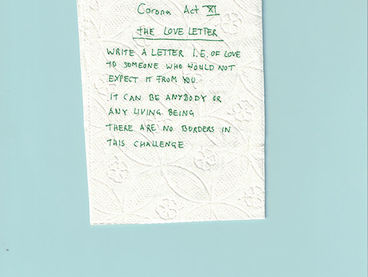 Corona Act XI
THE LOVE LETTER
WRITE A LETTER I.E. OF LOVE
TO SOMEONE WHO WOULD NOT
EXPECT IT FROM YOU.
IT CAN BE ANYBODY OR
ANY LIVING BEING
THERE ARE NO BORDERS IN
THIS CHALLENGE